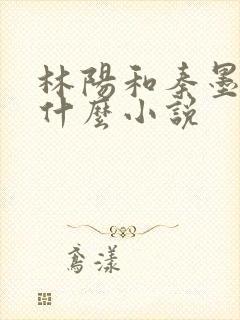 林陽和秦墨
什麼小說
鳶漾